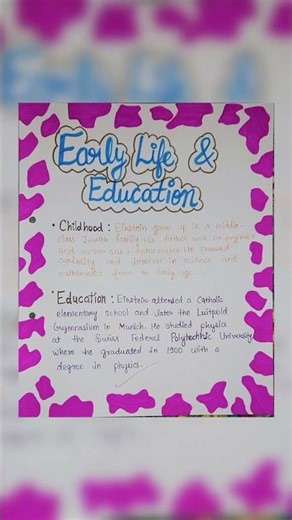 Early Life &
Education
• Childhood : Einstein grew up in a middle-
class Jewish family. His father was an engineer
and mother was a homemaker. He showed
curiosity and interest in science and
mathematics from an early age.
• Education : Einstein attended a Catholic
elementary school and later the Luitpold
Gymnasium in Munich. He studied physics
at the Swiss Federal Polytechnic University
where he graduated in 1900 with a
degree in physics.